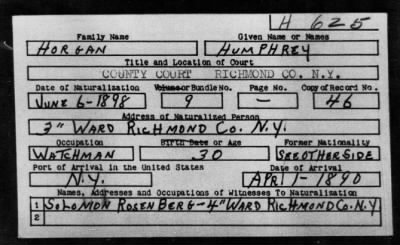 H 625
Family Name Given Name or Names
HORGAN HUMPHREY
Title and Location of Court
COUNTY COURT RICHMOND CO. N.Y.
Date of Naturalization Volume or Bundle No. Page No. Copy of Record No.
JUNE 6-1898 9 — 46
Address of Naturalized Person
3" WARD RICHMOND CO. N.Y.
Occupation Birth Date or Age Former Nationality
WATCHMAN 30 SEE OTHER SIDE
Port of Arrival in the United States Date of Arrival
N.Y. APRIL 1-1890
Names, Addresses and Occupations of Witnesses To Naturalization
1 SOLOMON ROSENBERG-4" WARD RICHMOND CO. N.Y.
2